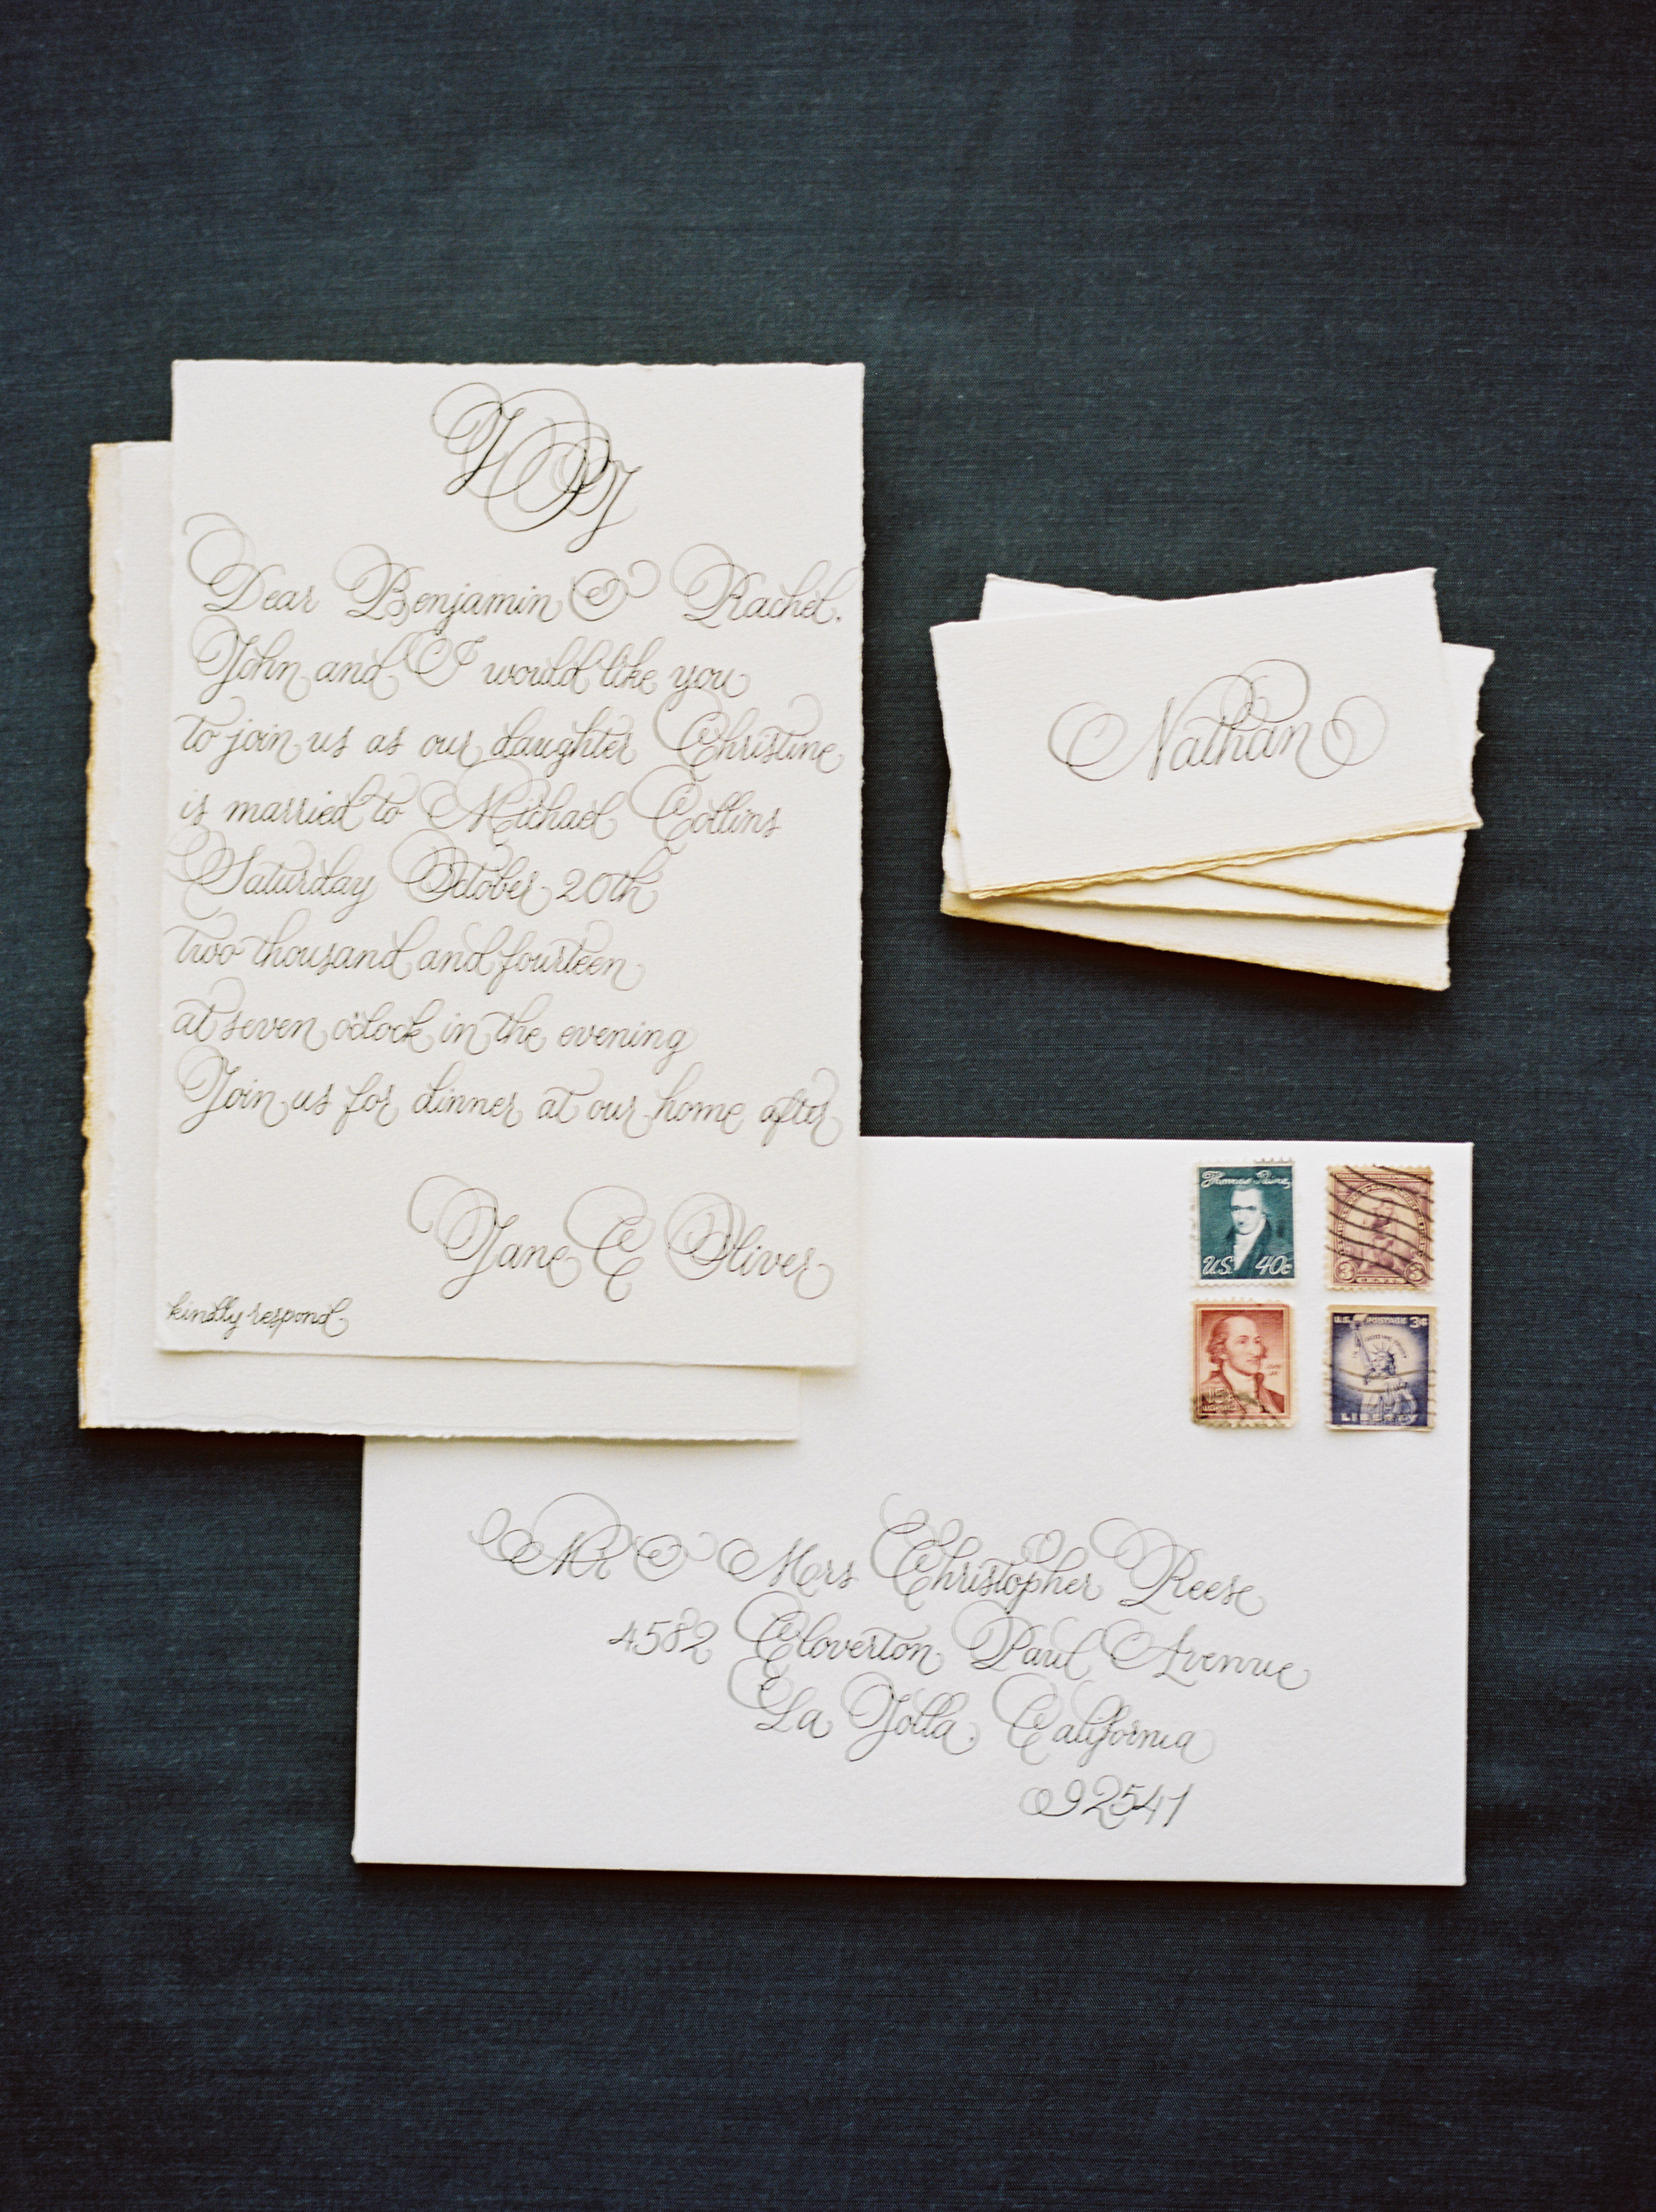 Dear Benjamin & Rachel,
John and I would like you
to join us as our daughter Christine
is married to Michael Collins
Saturday October 20th
two thousand and fourteen
at seven o'clock in the evening
Join us for dinner at our home after
Jane C Oliver
kindly respond
Nathan
Thomas Paine
U.S. 40c
3 CENTS 3
15c
U.S. POSTAGE 3¢
LIBERTY
Mr & Mrs Christopher Reese
4582 Cloverton Paul Avenue
La Jolla, California
92541